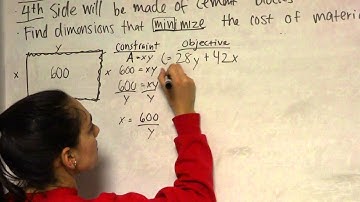 4th side will be made of cement blocks
· Find dimensions that minimize the cost of materi
y
x 600 x
Constraint Objective
A = xy C = 28y + 42x
600 = xy
600 = xy
y y
x = 600
y